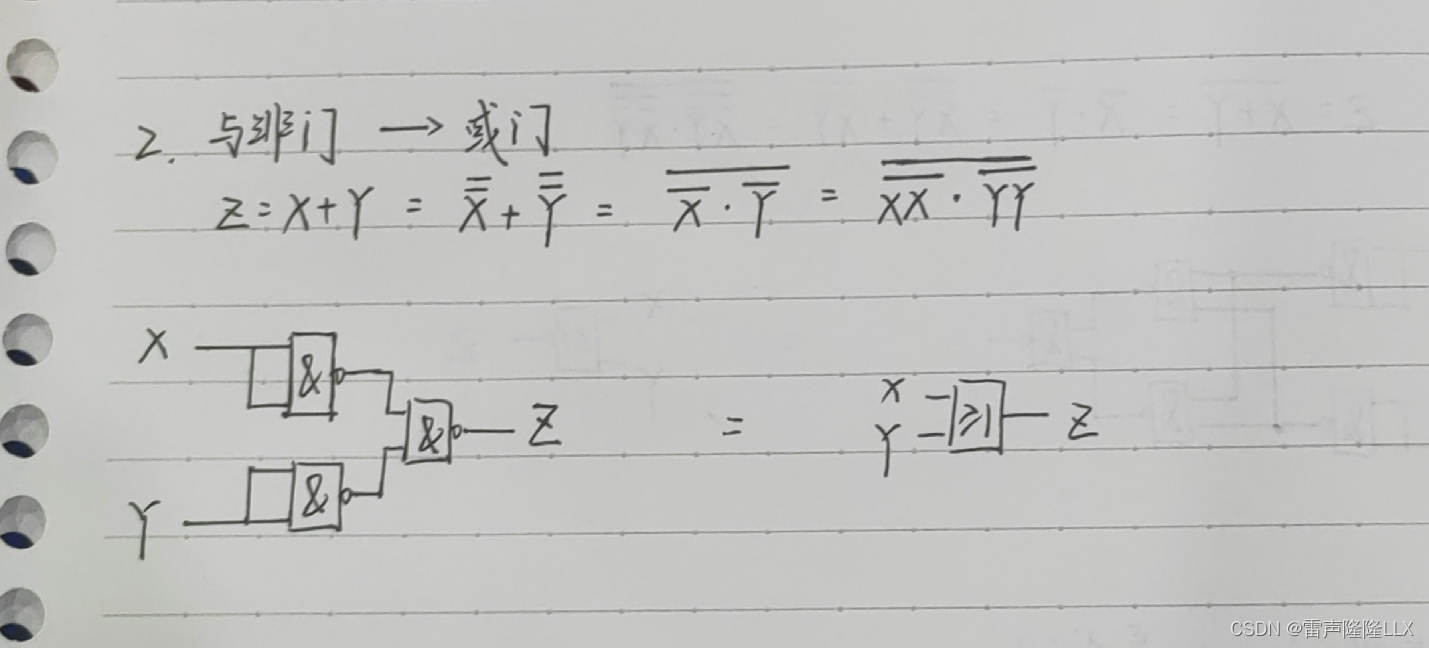 2. 与非门 → 或门
Z = X + Y = X̿ + Y̿ = \overline{\overline{X} · \overline{Y}} = \overline{\overline{XX} · \overline{YY}}
X & & Z = X Y ≥1 Z
Y &
CSDN @雷声隆隆LLX